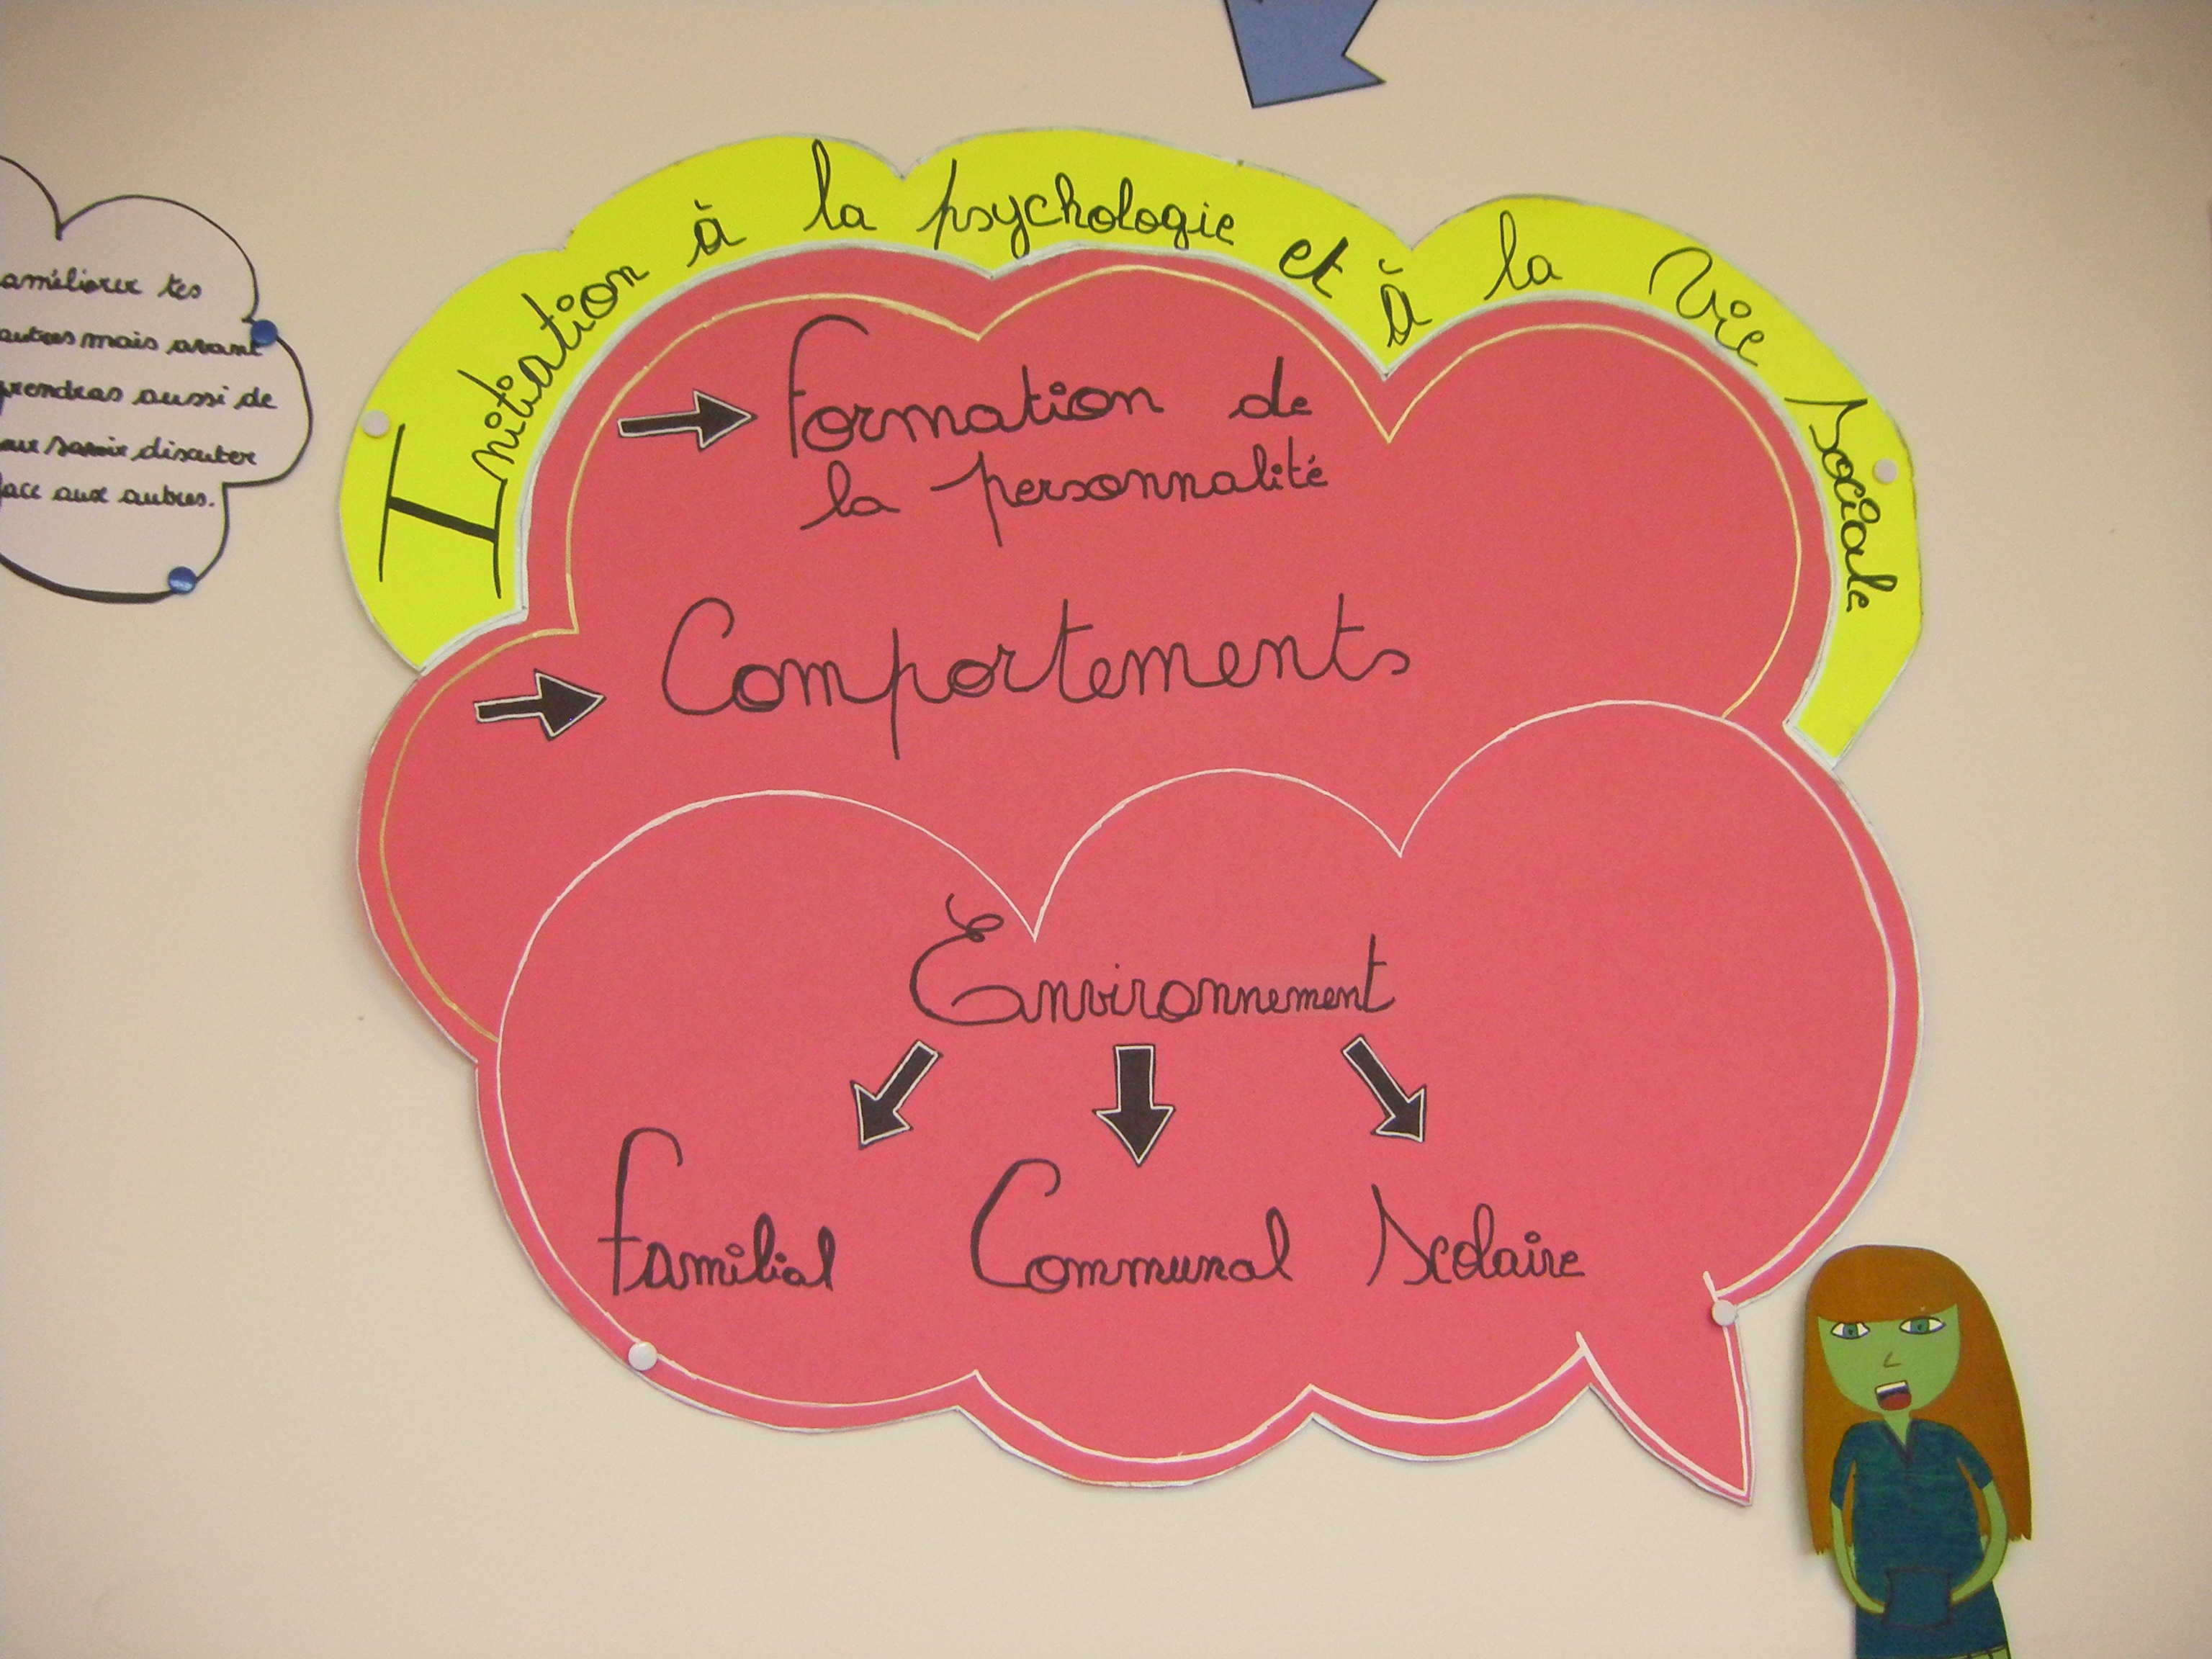 améliorer tes
autres mais avant
prendras aussi de
savoir discuter
face aux autres.
Initiation à la psychologie et à la Vie Sociale
Formation de
la personnalité
Comportements
Environnement
Familial Communal Scolaire